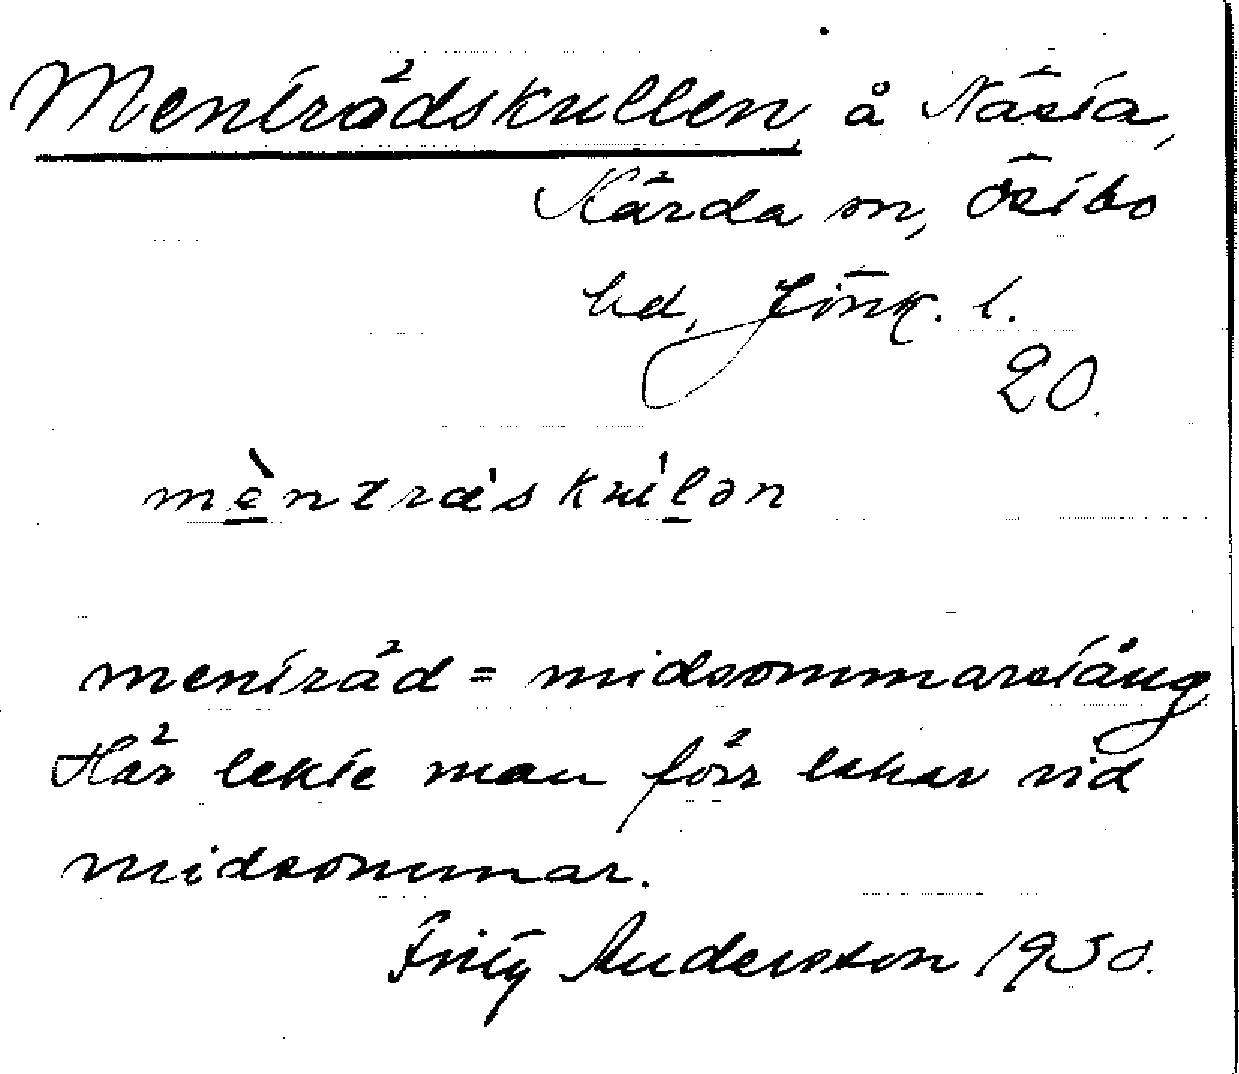 Menträdskullen å Nästa,
Kärda sn, Östbo
hd, Jönk. l.
20.
mèntrǽskúlən
menträd = midsommarstång
Här lekte man förr lekar vid
midsommar.
Fritz Andersson 1930.